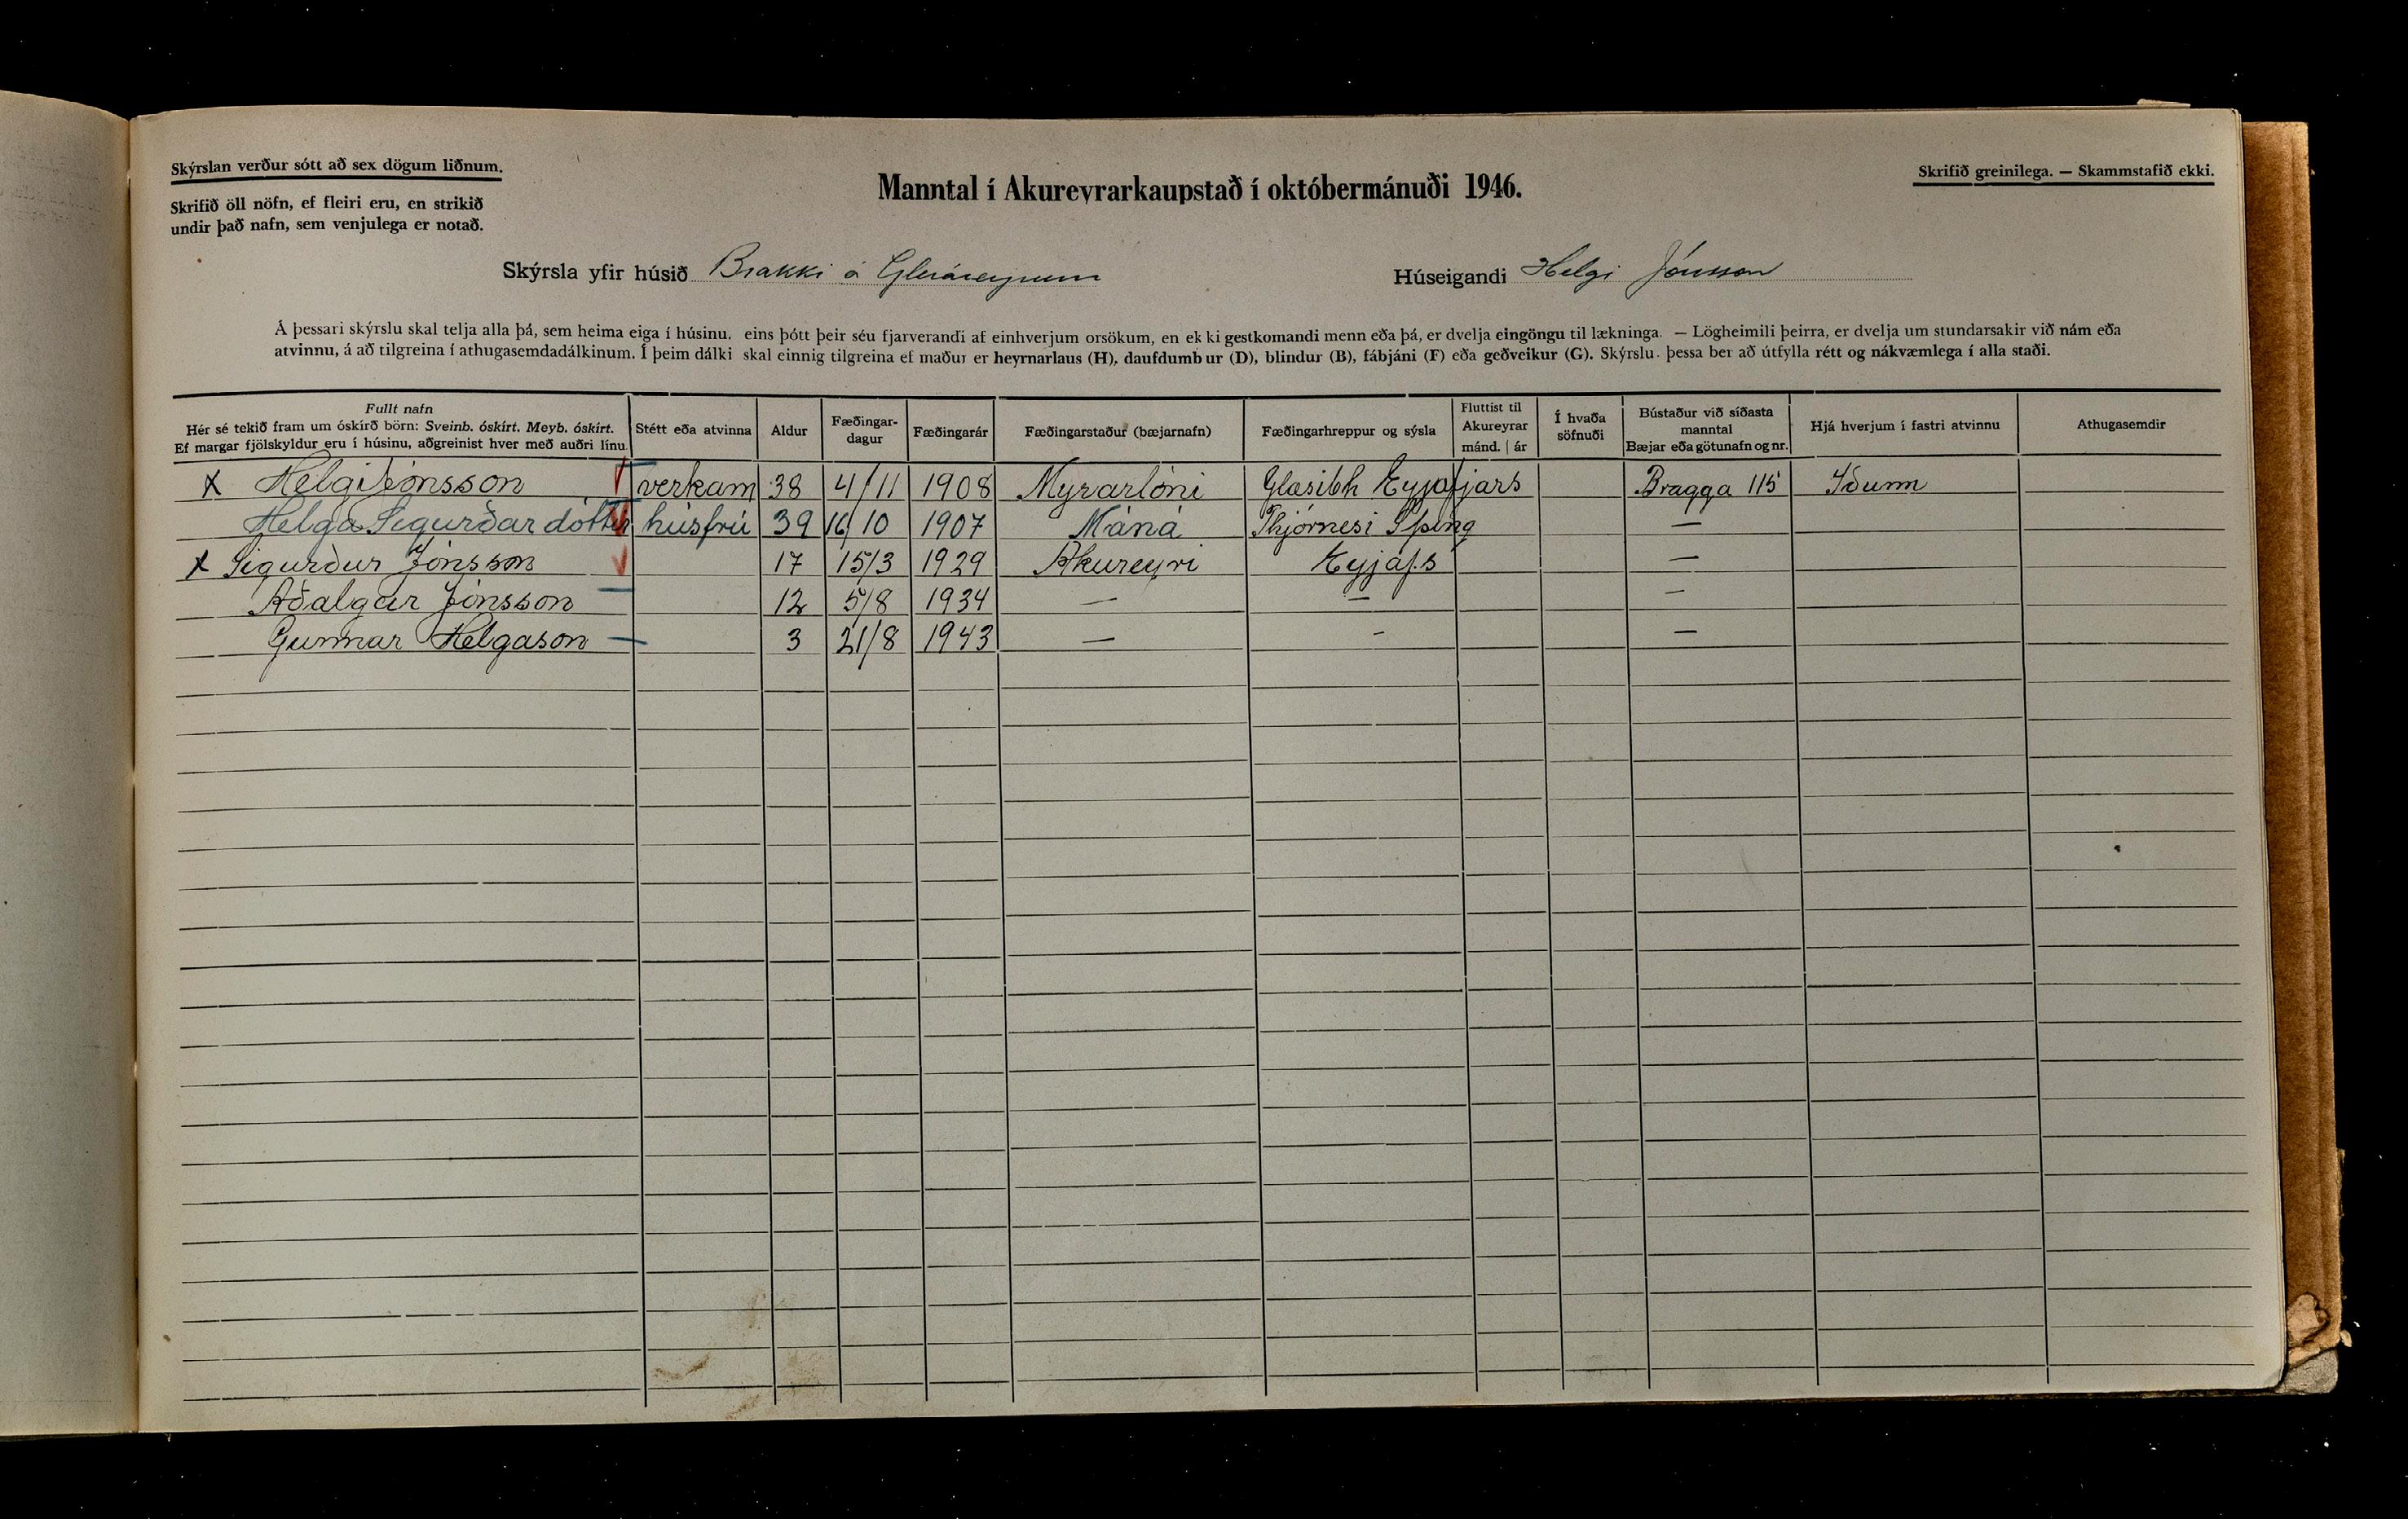 Skýrslan verður sótt að sex dögum liðnum.
Skrifið öll nöfn, ef fleiri eru, en strikið
undir það nafn, sem venjulega er notað.
Manntal í Akureyrarkaupstað í októbermánuði 1946.
Skrifið greinilega. — Skammstafið ekki.
Skýrsla yfir húsið Brakki á Gleráreyrum
Húseigandi Helgi Jónsson
Á þessari skýrslu skal telja alla þá, sem heima eiga í húsinu, eins þótt þeir séu fjarverandi af einhverjum orsökum, en ekki gestkomandi menn eða þá, er dvelja eingöngu til lækninga. — Lögheimili þeirra, er dvelja um stundarsakir við nám eða
atvinnu, á að tilgreina í athugasemdadálkinum. Í þeim dálki skal einnig tilgreina ef maður er heyrnarlaus (H), daufdumbur (D), blindur (B), fábjáni (F) eða geðveikur (G). Skýrslu þessa ber að útfylla rétt og nákvæmlega í alla staði.
Fullt nafn
Hér sé tekið fram um óskírð börn: Sveinb. óskírt. Meyb. óskírt.
Ef margar fjölskyldur eru í húsinu, aðgreinist hver með auðri línu.
Stétt eða atvinna
Aldur
Fæðingar-
dagur
Fæðingarár
Fæðingarstaður (bæjarnafn)
Fæðingarhreppur og sýsla
Fluttist til
Akureyrar
mánd. | ár
Í hvaða
söfnuði
Bústaður við síðasta
manntal
Bæjar eða götunafn og nr.
Hjá hverjum í fastri atvinnu
Athugasemdir
x Helgi Jónsson verkam 38 4/11 1908 Myrarlóni Glæsibh Eyjafjars Bragga 115 Iðunn
Helga Sigurðardóttir húsfrú 39 16/10 1907 Máná Thjörnesi S þing —
x Sigurður Jónsson 17 15/3 1929 Akureyri Eyjafs —
Aðalgeir Jónsson — 12 5/8 1934 — — —
Gunnar Helgason — 3 21/8 1943 — - —